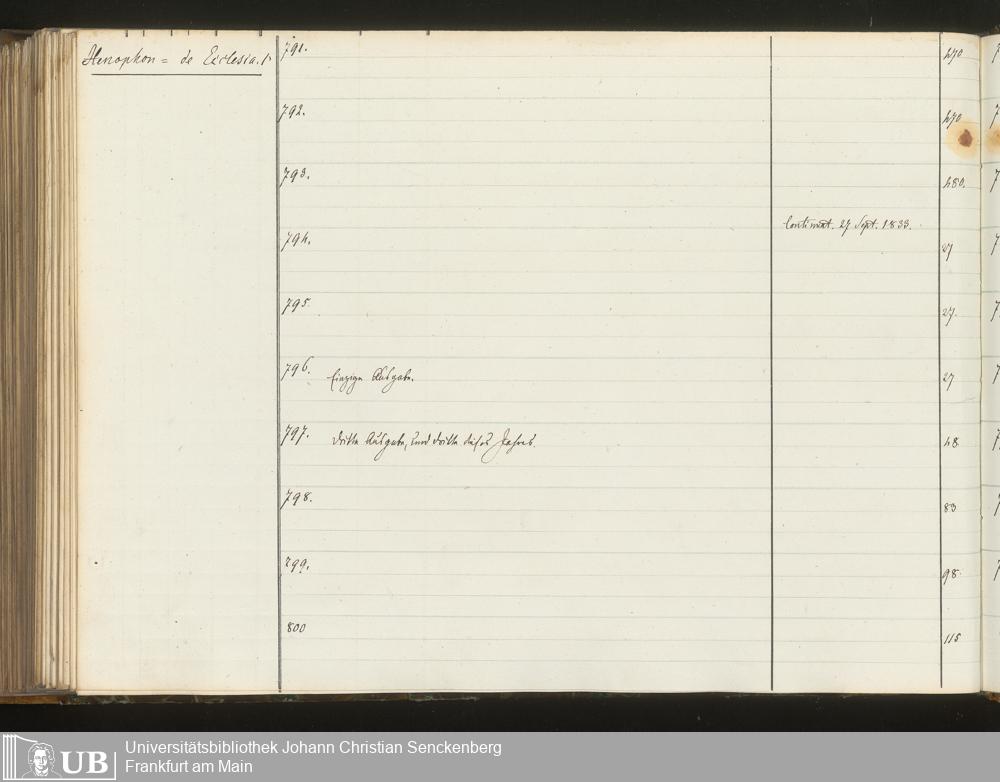 Xenophon = de Ecclesia. 1
791.
470
792.
470
793.
480.
Continuat. 27 Sept. 1833.
794.
27
795.
27.
796.
Einzige Ausgabe.
27
797.
Dritte Ausgabe, und dritte dieses Jahres.
48
798.
83
799.
98.
800
115
UB
Universitätsbibliothek Johann Christian Senckenberg
Frankfurt am Main